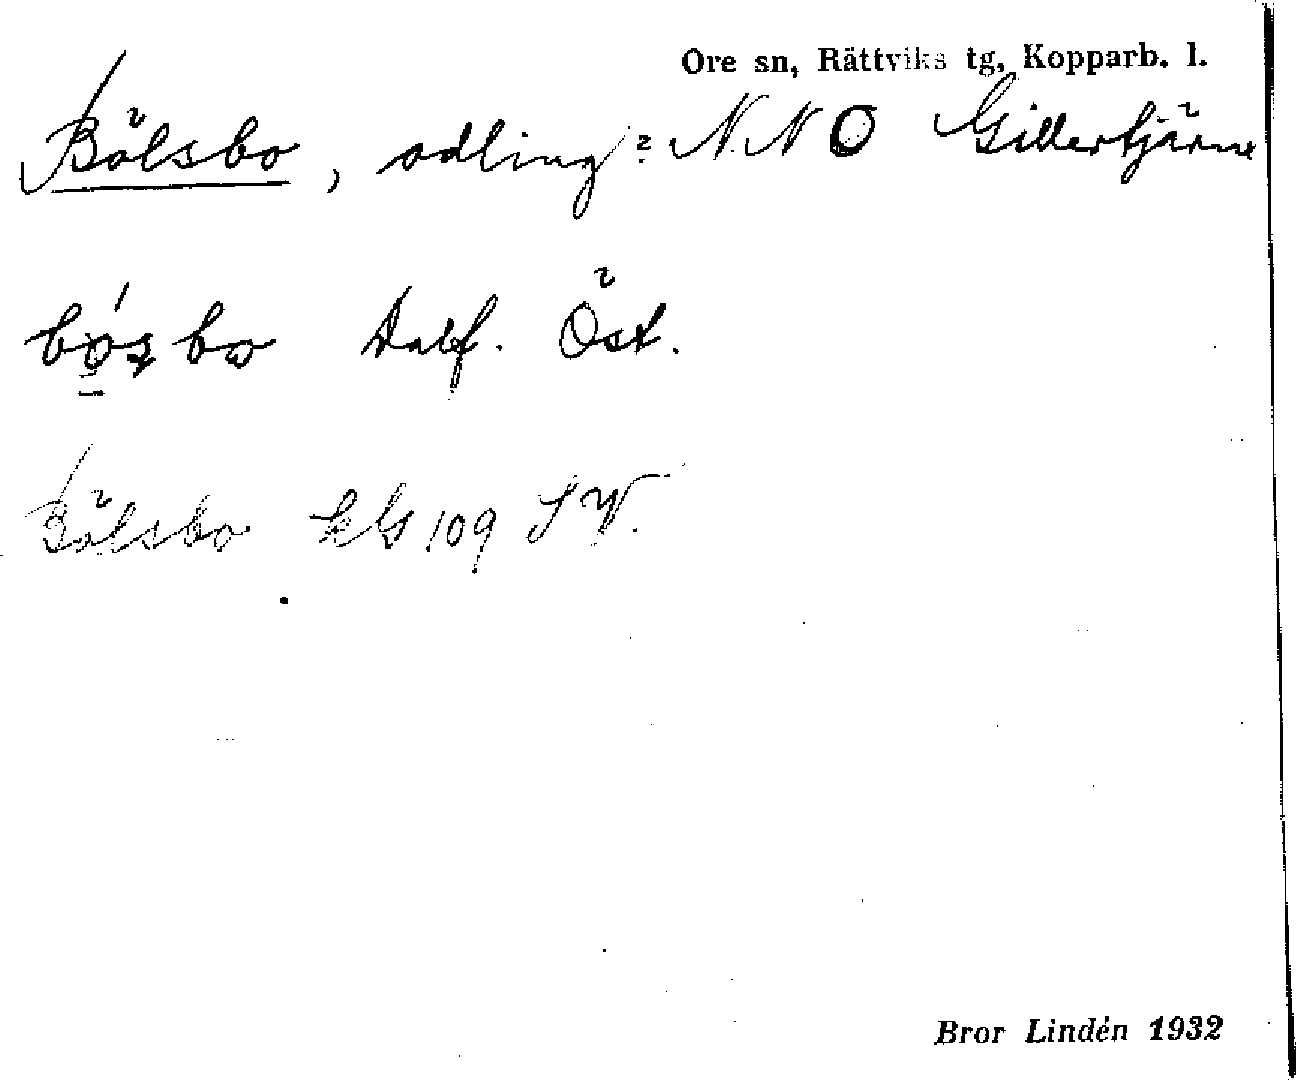 Ore sn, Rättviks tg, Kopparb. l.
Bölsbo, odling? NNO Gillertjärne
Dalf. Öst.
Bölsbo kG 109 SV.
Bror Lindén 1932